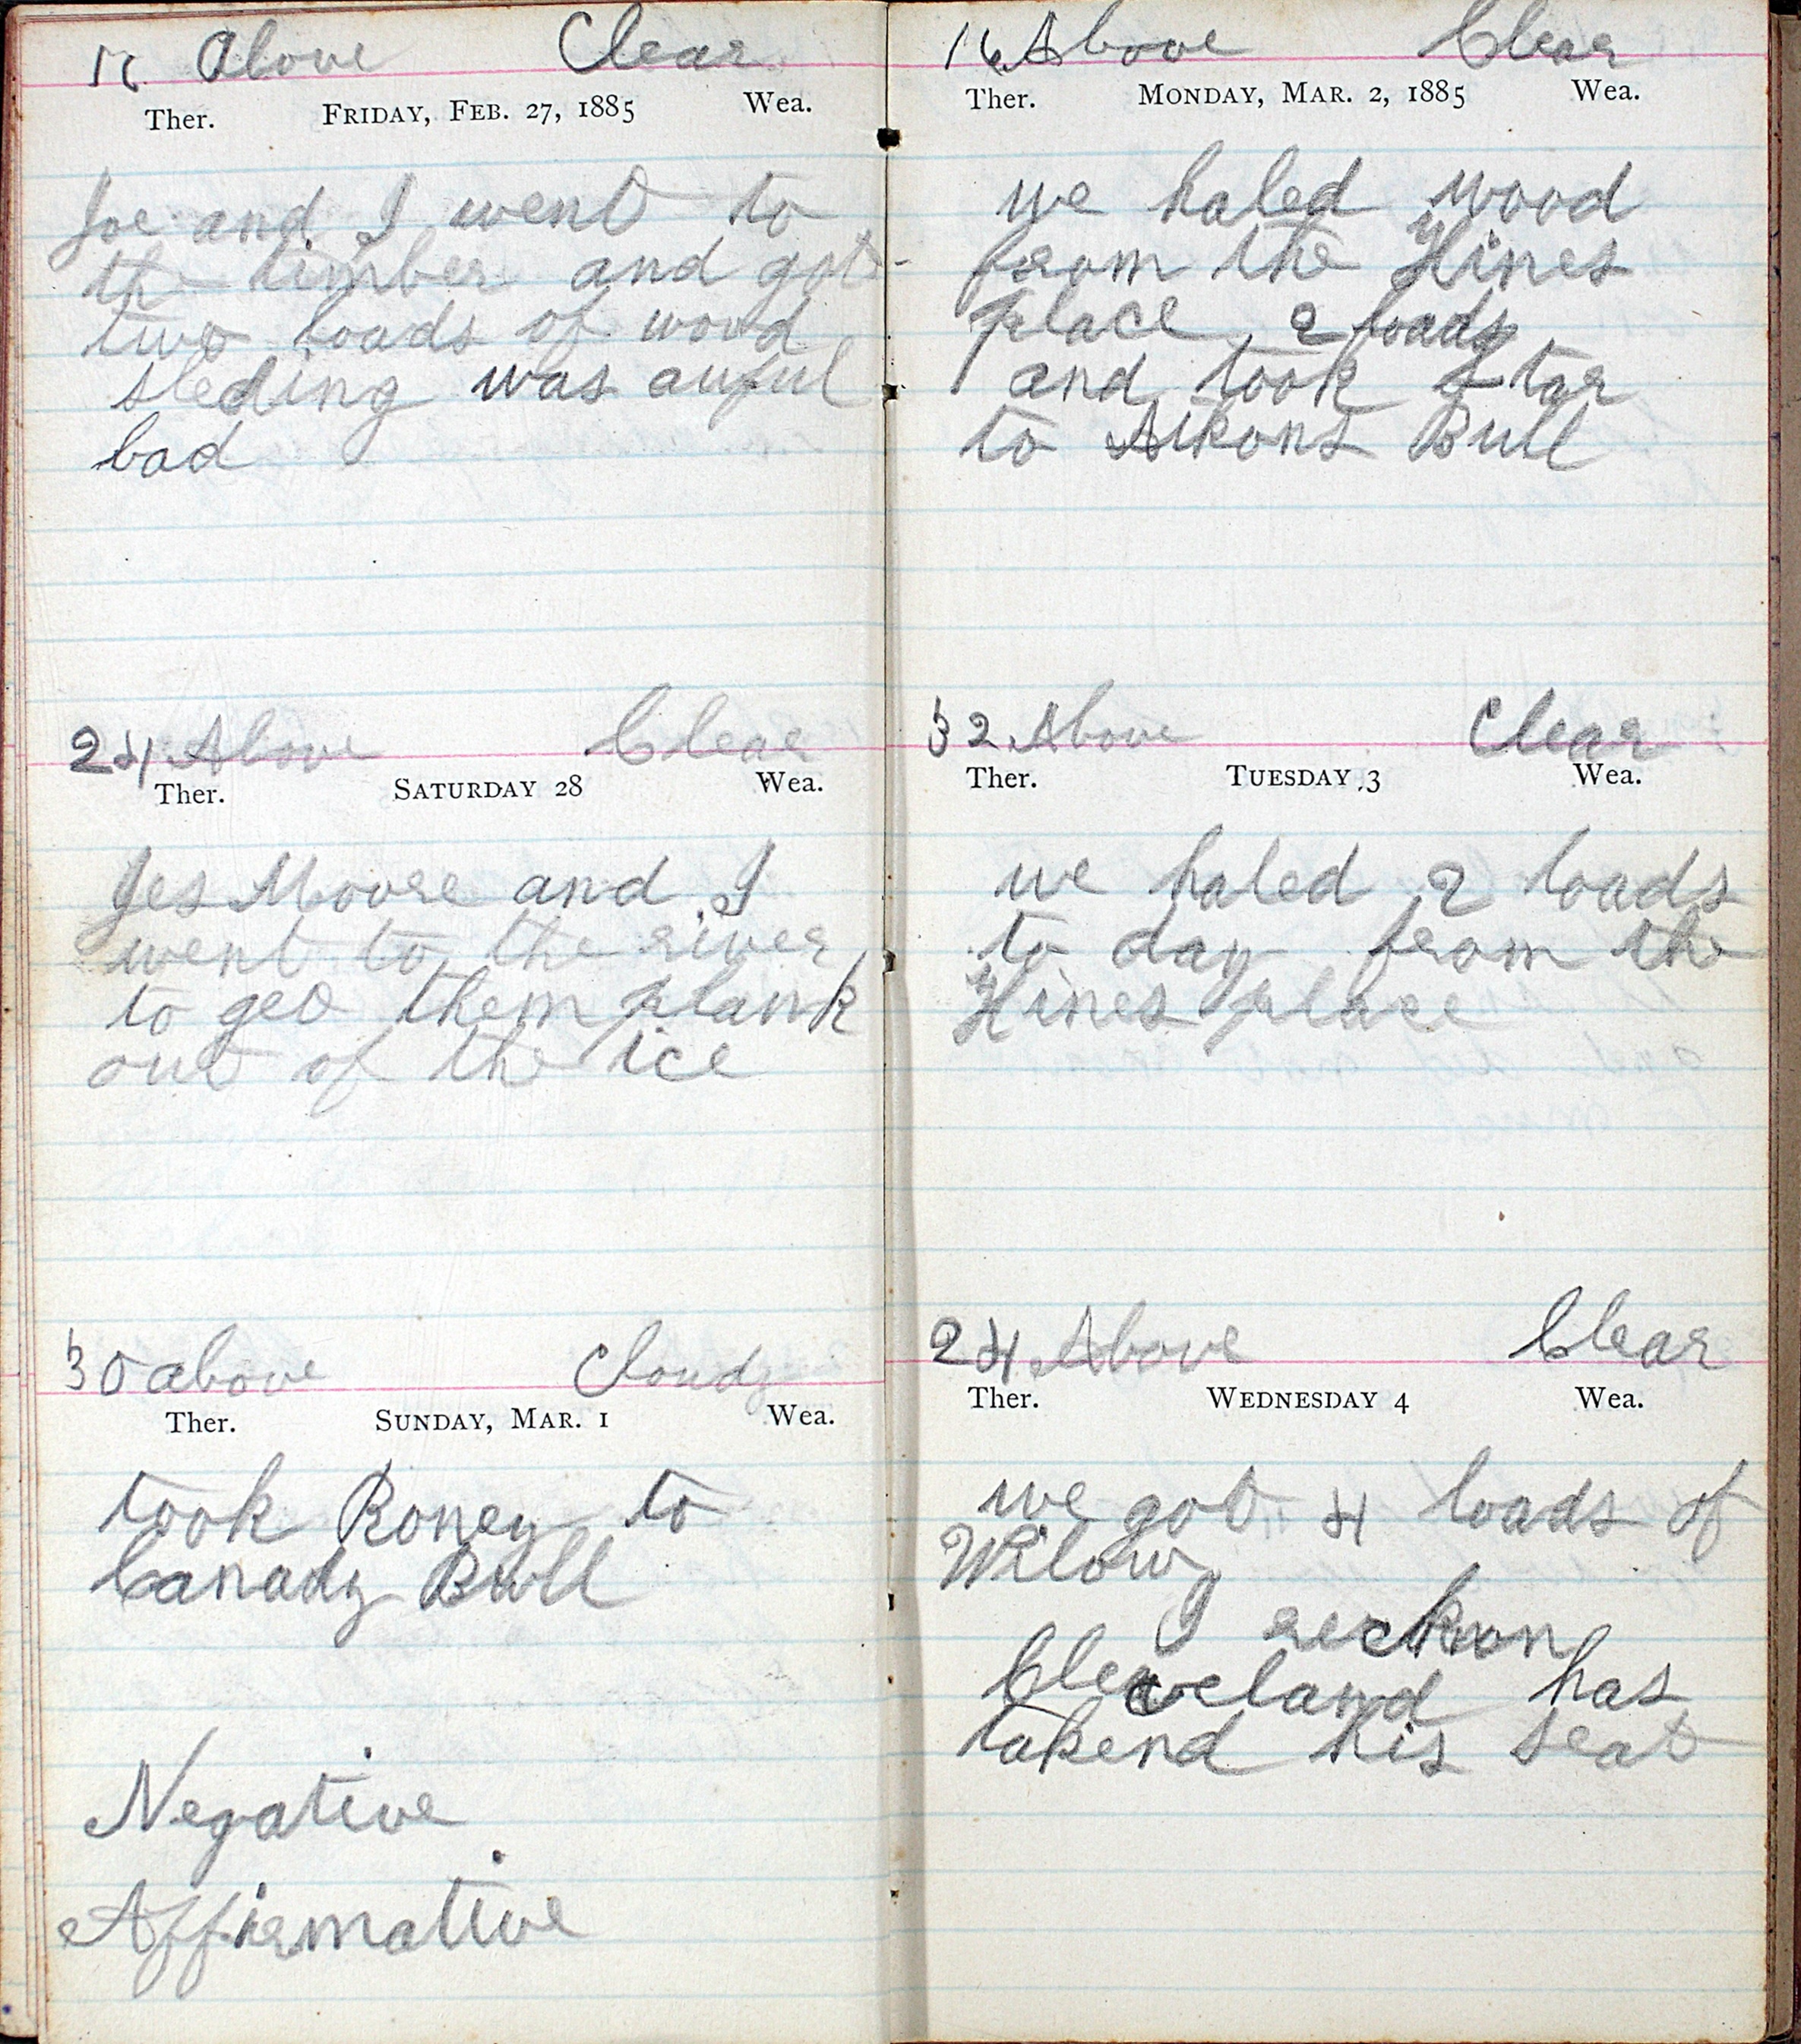 16 Above Clear
Ther. FRIDAY, FEB. 27, 1885 Wea.
Joe and I went to
the timber and got
two loads of wood
sleding was awful
bad
24 Above Clear
Ther. SATURDAY 28 Wea.
Jes Moore and I
went to the river
to get them plank
out of the ice
30 above Cloudy
Ther. SUNDAY, MAR. 1 Wea.
took Roney to
Canady Bull
Negative
Affirmative
16 Above Clear
Ther. MONDAY, MAR. 2, 1885 Wea.
we haled wood
from the Hines
place 2 loads
and took Star
to Aikons Bull
32 Above Clear
Ther. TUESDAY 3 Wea.
we haled 2 loads
to day from the
Hines place
24 Above Clear
Ther. WEDNESDAY 4 Wea.
we got 4 loads of
Wilow
I reckon
Cleveland has
takend his seat